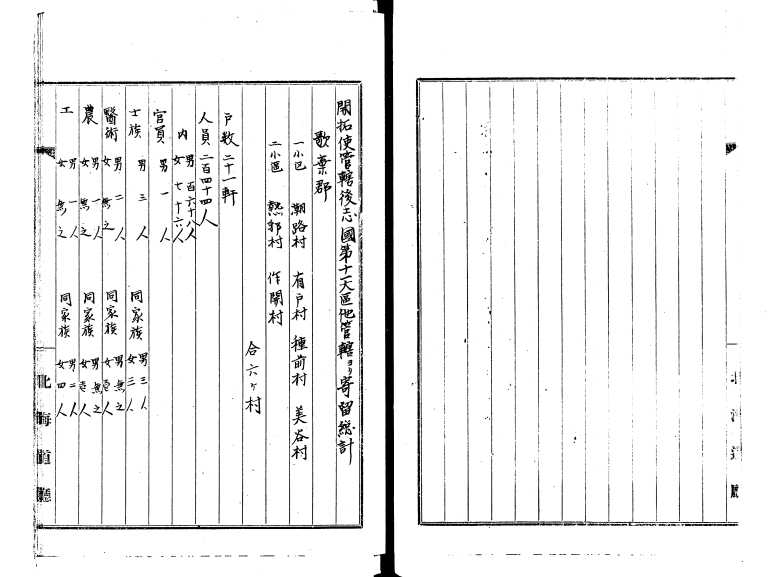 開拓使管轄後志國第十一大區他管轄ヨリ寄留総計
歌棄郡
一小区 潮路村 有戸村 種前村 美谷村
二小區 熱郛村 作開村
合六ヶ村
戸数二十一軒
人員二百四十四人
内 男百六十八人
女七十六人
官員 男一人
士族 男三人 同家族 男三人
女三人
醫術 男二人 同家族 男無之
女無之
農 男一人 同家族 男無之
女無之
工 男一人 同家族 男二人
女無之 女四人
北海道廳